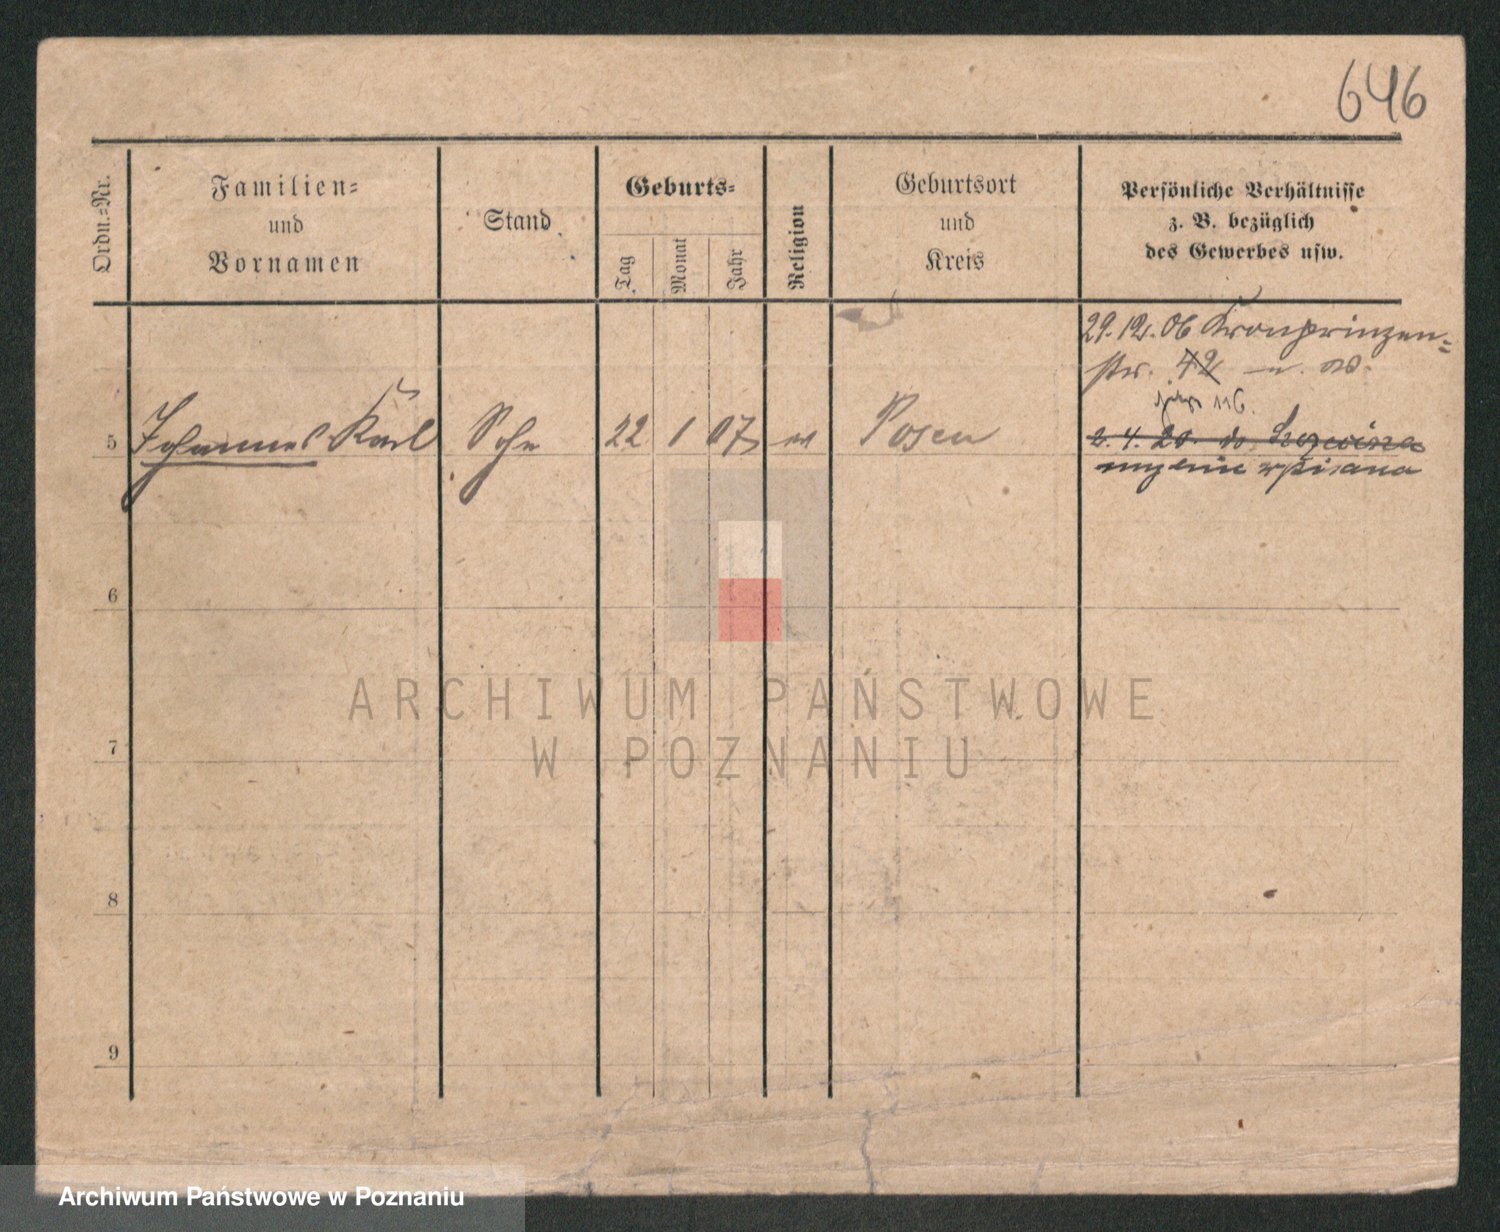 646
Ordn.=Nr.
Familien=
und
Vornamen
Stand
Geburts=
Tag
Monat
Jahr
Religion
Geburtsort
und
Kreis
Persönliche Verhältnisse
z. B. bezüglich
des Gewerbes usw.
29.12.06 Kronprinzen=
str. 42
116.
5 Johannes Karl Sohn 22 1 07 Posen
2. 4. 20.
mylnie wpisana
6
7
8
9
ARCHIWUM PAŃSTWOWE
W POZNANIU
Archiwum Państwowe w Poznaniu